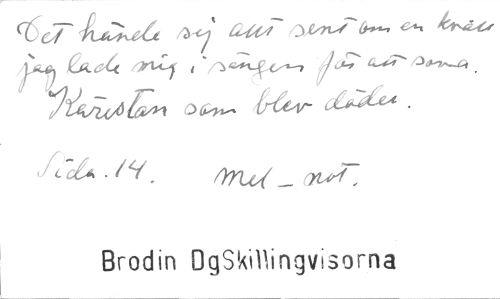 Det hände sej att sent om en kväll
jag lade mig i sängen för att sova.
Kärestan som blev döden.
Sida. 14. Mel - not.
Brodin DgSkillingvisorna